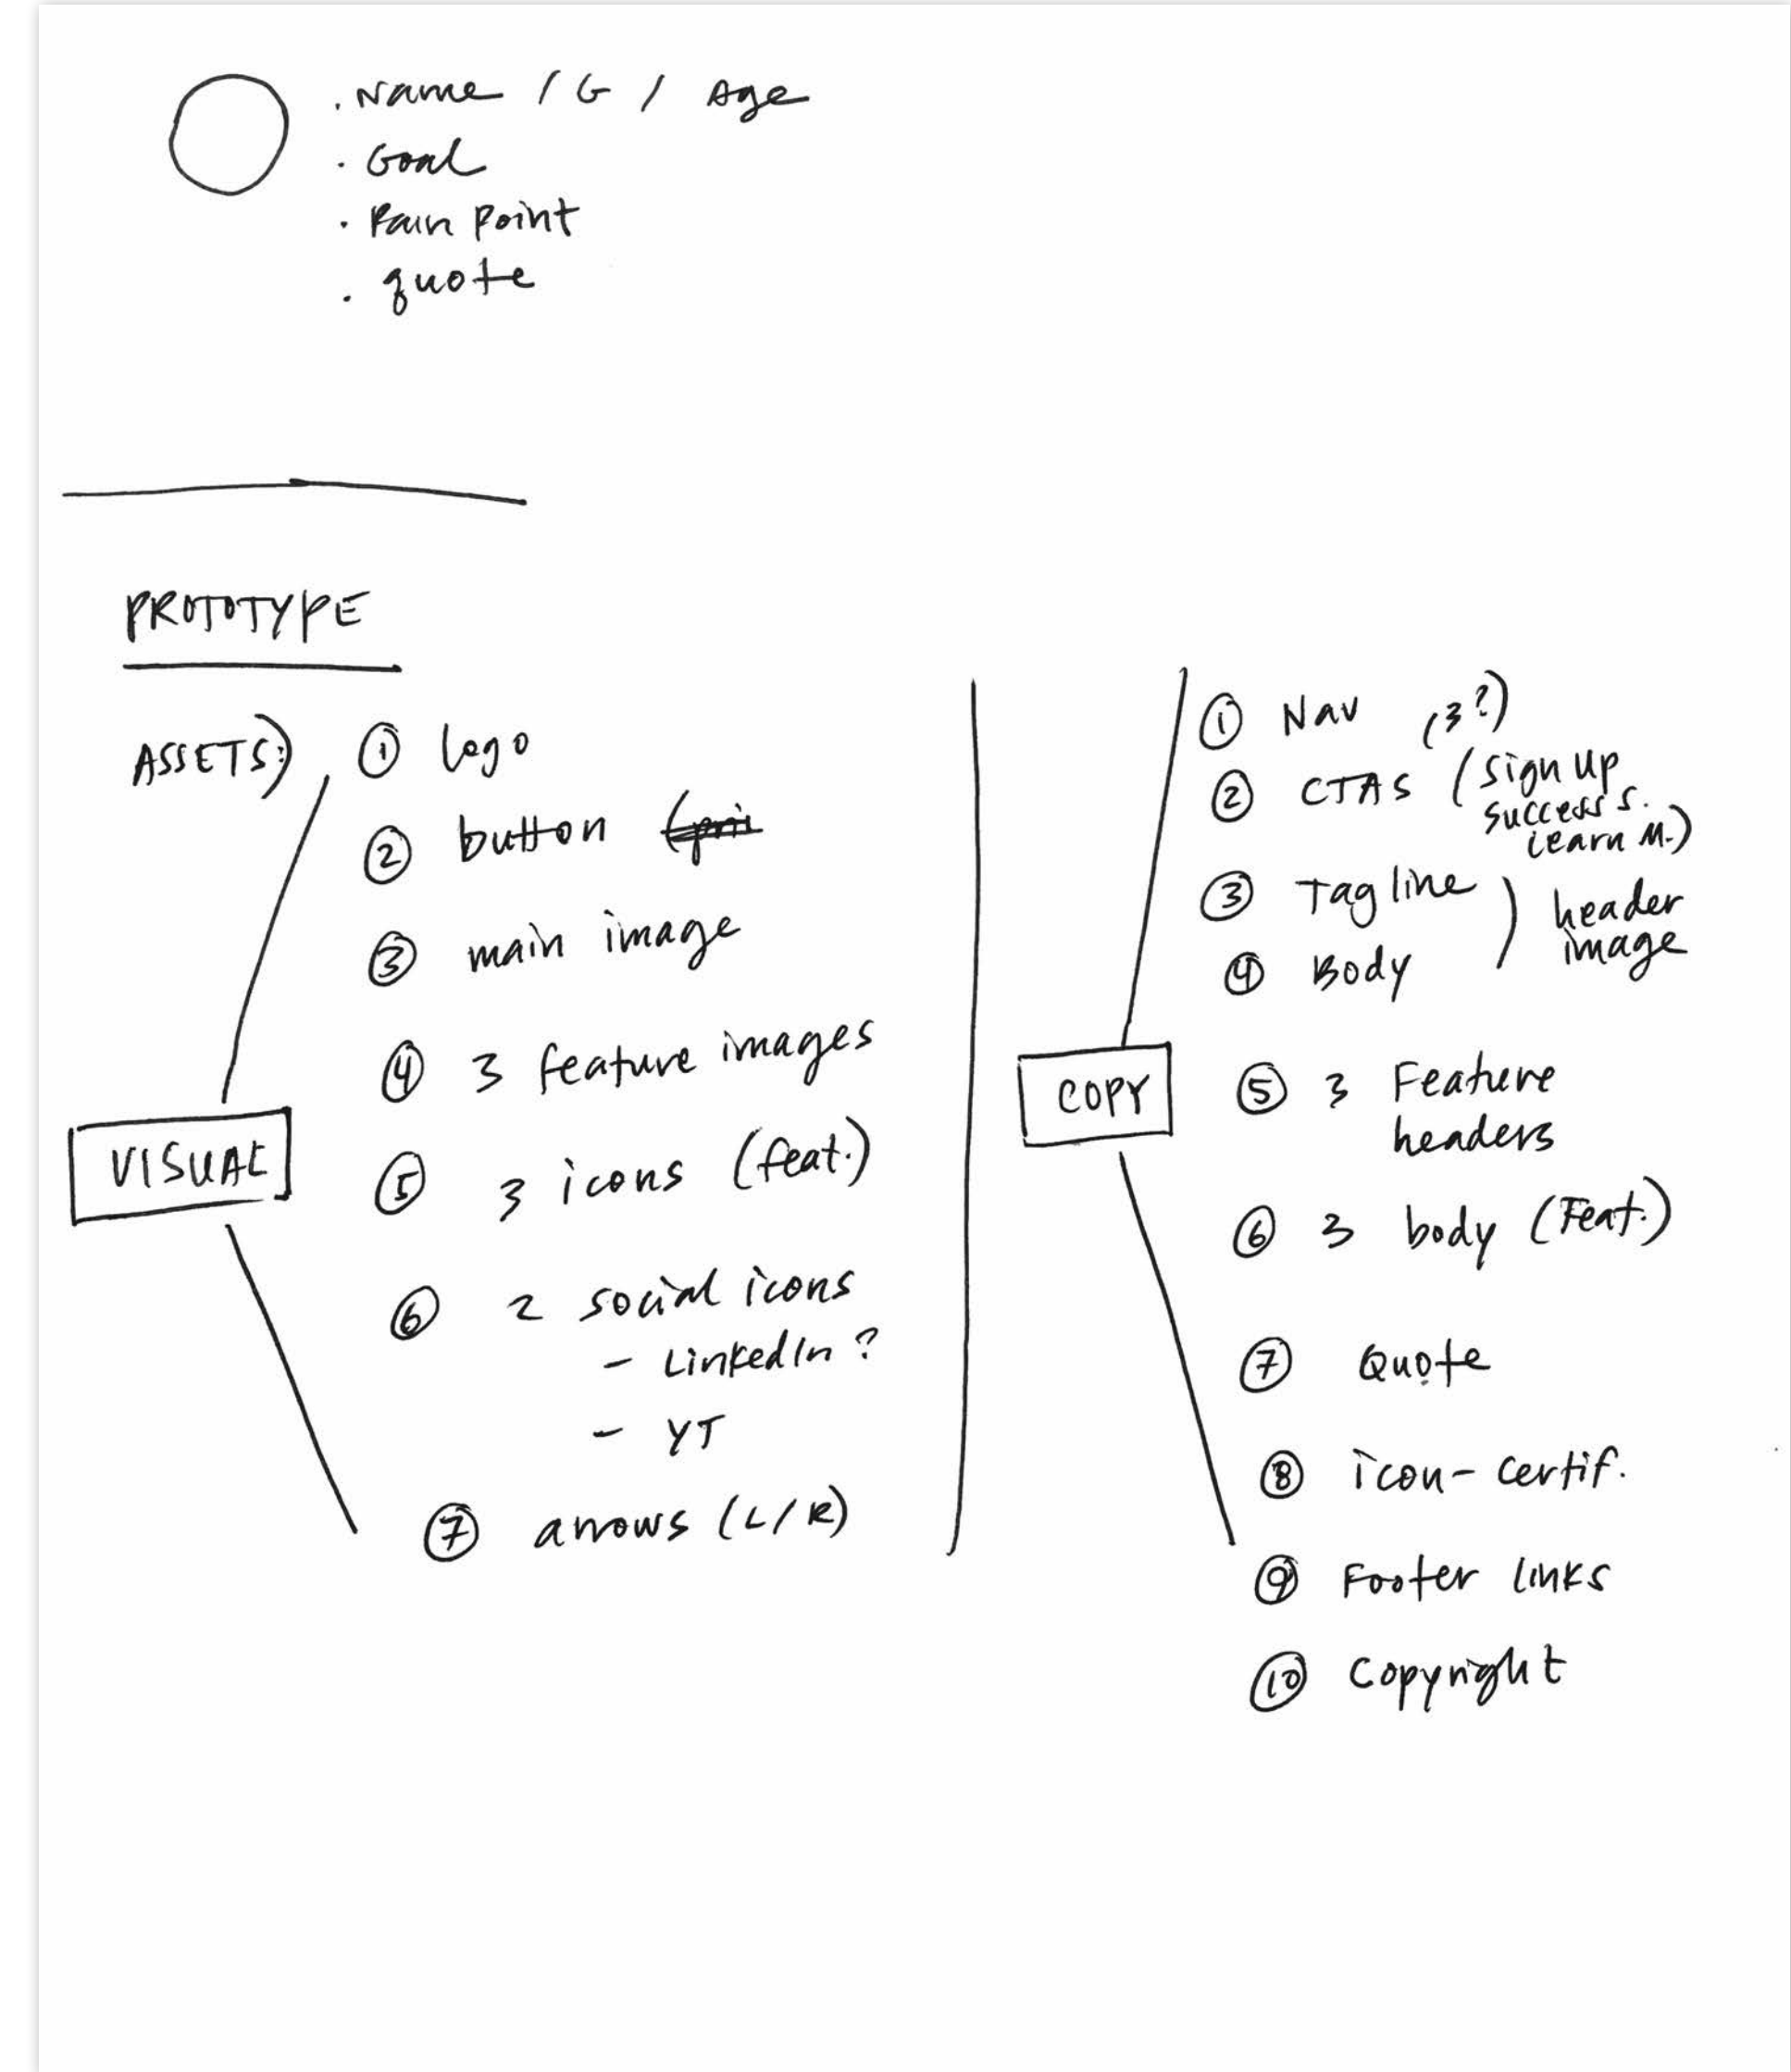 . Name / G / Age
. Goal
. Pain Point
. quote
PROTOTYPE
ASSETS:)
① logo
② button
③ main image
④ 3 feature images
⑤ 3 icons (feat.)
⑥ 2 social icons
- LinkedIn ?
- YT
⑦ arrows (L/R)
VISUAL
① Nav (3?)
② CTAS (sign up
success s.
learn M.)
③ Tag line ) header
image
④ Body
COPY
⑤ 3 Feature
headers
⑥ 3 body (Feat.)
⑦ Quote
⑧ icon- certif.
⑨ Footer links
⑩ copyright